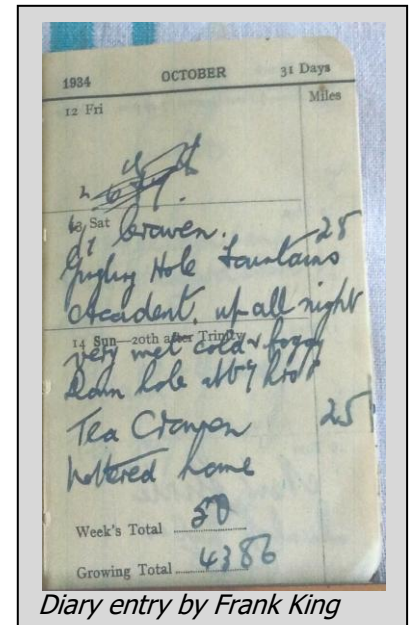 1934 OCTOBER 31 Days
Miles
12 Fri
13 Sat
Craven. 25
Hole Fountains
Accident, up all night
14 Sun—20th after Trinity
very wet cold & foggy
Down hole
Tea Craven 25
home
Week's Total 50
Growing Total 4386
Diary entry by Frank King